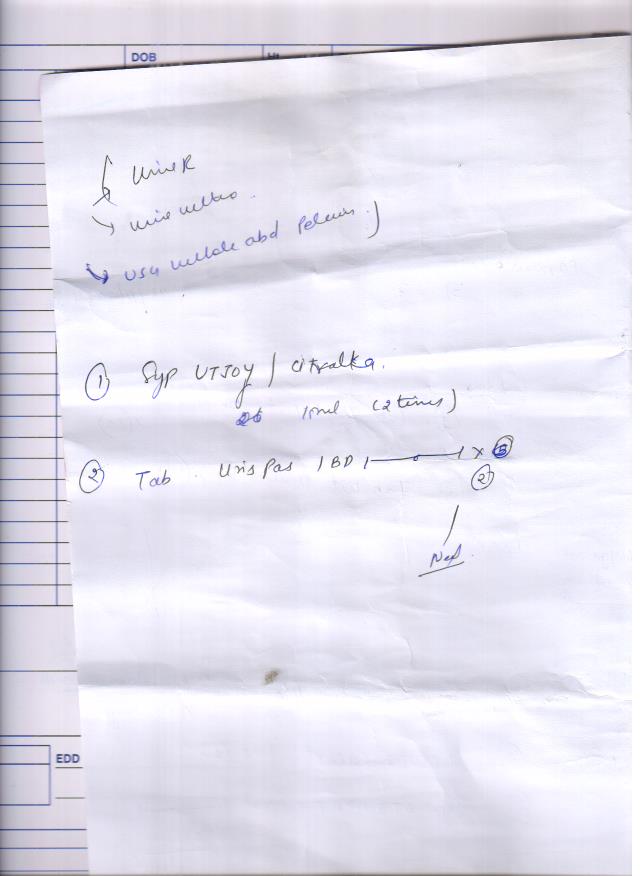 DOB
Urine R
usg whole abd Pelvis )
① Syp UTJOY / Citralka.
10ml (2 times)
② Tab. Urispas 1 BD 1 — 0 — 1 x
②
EDD